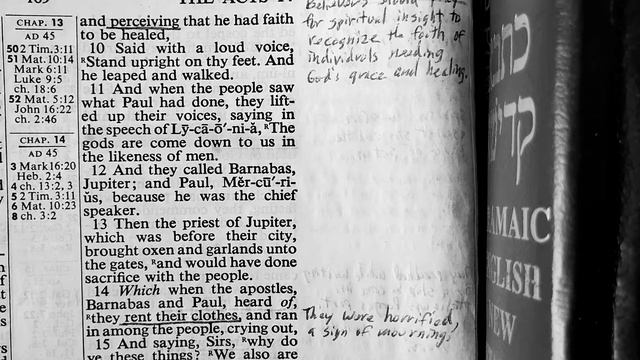 CHAP. 13
AD 45
50 2 Tim. 3:11
51 Mat. 10:14
Mark 6:11
Luke 9:5
ch. 18:6
52 Mat. 5:12
John 16:22
ch. 2:46
CHAP. 14
AD 45
3 Mark 16:20
Heb. 2:4
4 ch. 13:2, 3
5 2 Tim. 3:11
6 Mat. 10:23
8 ch. 3:2
and perceiving that he had faith
to be healed,
10 Said with a loud voice,
ᴿStand upright on thy feet. And
he leaped and walked.
11 And when the people saw
what Paul had done, they lift-
ed up their voices, saying in
the speech of Lȳ-cā-ō′-ni-ă, ᴿThe
gods are come down to us in
the likeness of men.
12 And they called Barnabas,
Jupiter; and Paul, Mẽr-cū′-ri-
ŭs, because he was the chief
speaker.
13 Then the priest of Jupiter,
which was before their city,
brought oxen and garlands unto
the gates, ᴿand would have done
sacrifice with the people.
14 Which when the apostles,
Barnabas and Paul, heard of,
ᴿthey rent their clothes, and ran
in among the people, crying out,
15 And saying, Sirs, ᴿwhy do
ye these things? ᴿWe also are
Believers should pray
for spiritual insight to
recognize the faith of
individuals needing
God's grace and healing.
They were horrified,
a sign of mourning.
כתבי
קדיש
AMAIC
GLISH
EW